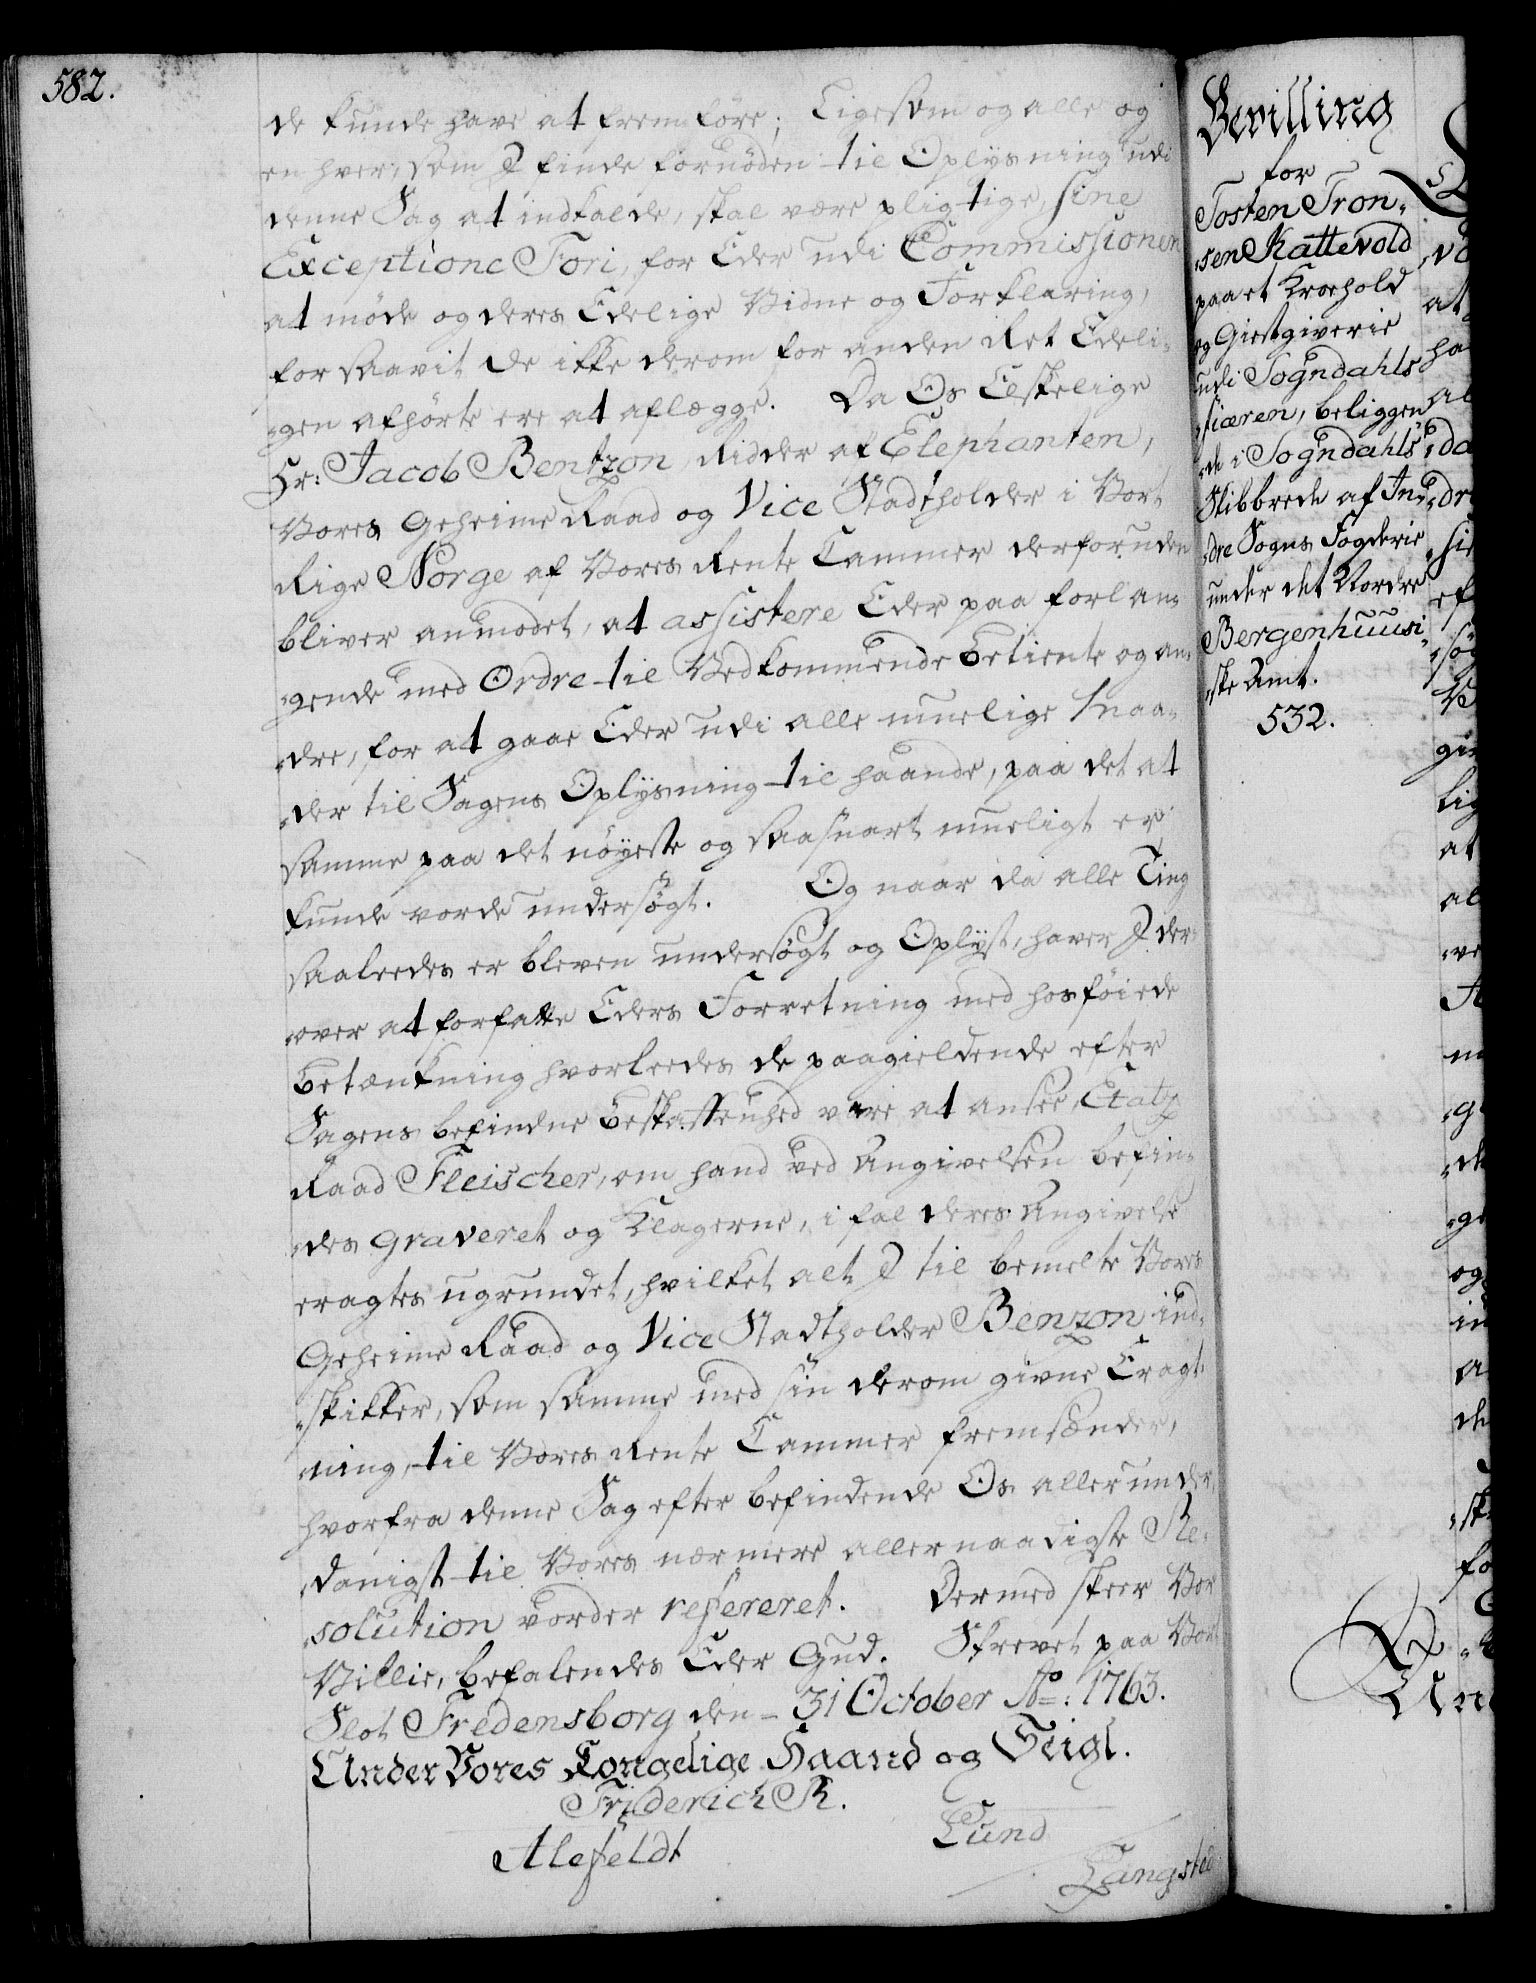 582.
de kunde have at fremföre; Ligesom og alle og
en hver, som I finde fornöden til Oplysning udi
denne Sag at indkalde, skal være pligtige, sine
Exceptione Fori, for Eder udi Commissionen
at möde og deres Edelige Vidne og Forklaring,
forsaavit de ikke derom for anden Ret Edeli-
gen afhörte ere at aflægge. Da Os Elskelige
Hr: Jacob Bentzon, Ridder af Elephanten,
Vores Geheime Raad og Vice Stadtholder i Vort
Rige Norge af Vores Rente Cammer derforuden
bliver anmodet, at assistere Eder paa forlan-
gende med Ordre til Vedkommende Betiente og an-
dre, for at gaae Eder udi alle muelige Maa-
der til Sagens Oplysning til haande, paa det at
samme paa det nöyeste og saasnart mueligt er
kunde vorde undersögt. Og naar da alle Ting
saaleedes er bleven undersögt og Oplyst, haver I der-
over at forfatte Eders Forretning med hosföiede
Betænkning hvorleedes de paagieldende efter
Sagens befindne Beskaffenhed være at ansee, Etatz
Raad Fleischer, om hand ved Angivelsen befin-
des graveret og Klagerne, i fal deres Angivelse
eragtes ugrundet, hvilket alt I til bemelte Vores
Geheime Raad og Vice Stadtholder Benzon ind-
skikker, som samme med sin derom givne Eragt-
ning, til Vores Rente Cammer fremsender,
hvorfra denne Sag efter befindende Os allerunder-
danigst til Vores nærmere allernaadigste Re-
solution vorder refereret. Dermed skeer Vor
Villie, befalendes Eder Gud. Skrevet paa Vort
Slot Fredensborg den 31 October Ao: 1763.
Under Vores Kongelige Haand og Seigl.
Friderich R.
Alefeldt
Lund
Langsted
Bevilling
for
Tosten Tron-
sen Kattevold
paa et Kroehold
og Giestgiverie
udi Sogndahls
fiæren, beliggen
de i Sogndahls
Skibbrede af In-
dre Sogns Fogderie
under det Nordre
Bergenhuusi-
ske Amt.
532.